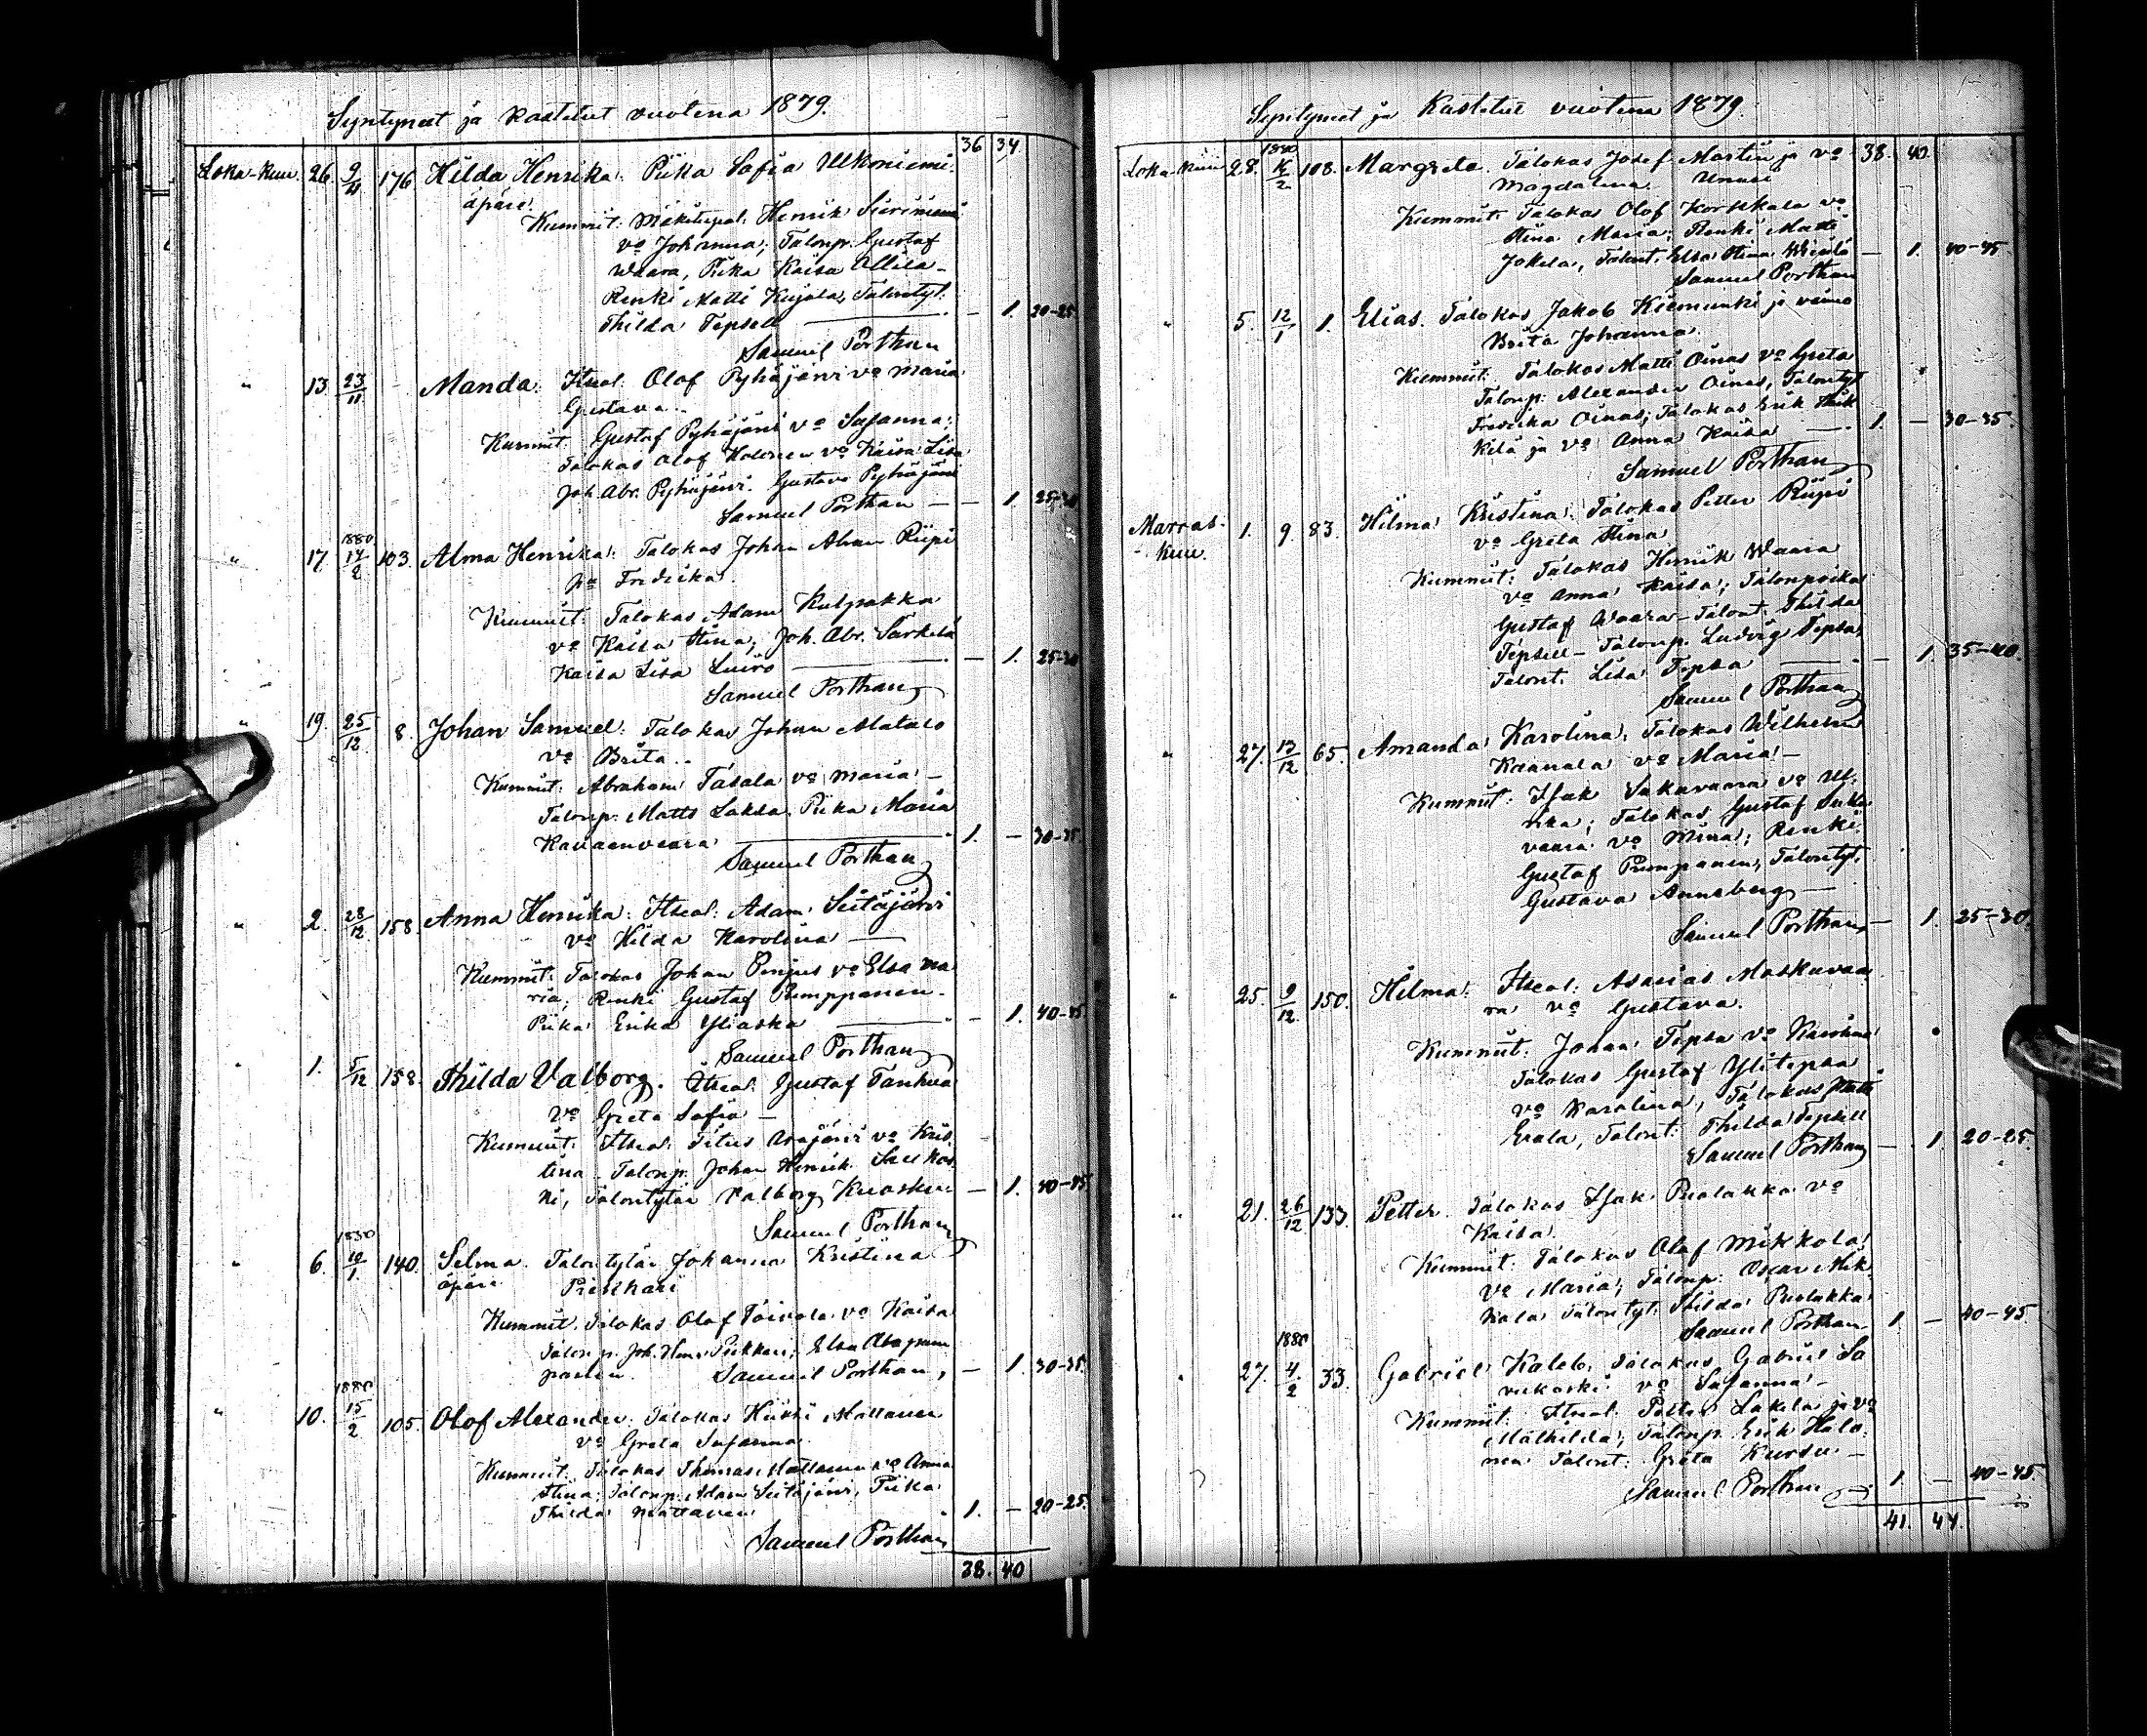 Syntyneet ja kastetut vuotena 1879.
36 34
Loka-kuu. 26. 9/11 176 Hilda Henrika. Piika Sofia Ulkoniemi.
äpärä.
Kummit: Mäkitupal. Henrik
vo Johanna; Talonp. Gustaf
Waara, Piika Kaisa Allila-
Renki Matti Kujala, Talontyt.
Thilda Tepsell — 1. 20-25
Samuel Porthan
" 13. 23/11 - Manda. Itseal. Olof Pyhäjärvi vo Maria
Gustava.
Kummit: Gustaf Pyhäjärvi vo Susanna;
Talokas Olof vo Kaisa Lisa
Joh. Abr. Pyhäjärvi. Gustava Pyhäjärvi
Samuel Porthan — 1. 25-30
1880
" 17. 14/2 103. Alma Henrika. Talokas Johan Riipi
vo Fredrika.
Kummit: Talokas Adam Kulpakka
vo Kaisa Stina; Joh. Abr. Särkelä
Kaisa Lisa Luiro — 1. 25-30
Samuel Porthan
" 19. 25/12 8. Johan Samuel. Talokas Johan Alatalo
vo Brita.
Kummit: Abraham vo Maria -
Talonp. Matts Piika Maria
1. — 30-35
Samuel Porthan
" 2. 28/12 158 Anna Henrika. Itseal. Adam Seitäjärvi
vo Hilda Karolina —
Kummit: Talokas Johan Peujus vo Elsa Ma
ria; Renki Gustaf Pumppanen -
Piika Erika Yliaska — 1. 40-45
Samuel Porthan
" 1. 5/12 158. Thilda Valborg. Itseal. Gustaf Tanhua
vo Greta Sofia -
Kummit: Itseal. Titus vo Kris
tina. Talonp. Johan Henrik
ni, Talontytär Valborg — 1. 40-45
Samuel Porthan
1880
" 6. 10/1 140. Selma. Talontytär Johanna Kristina
äpärä
Kummit. Talokas Olof Toivola vo Kaisa
Talonp. Joh. Elsa
Samuel Porthan, — 1. 30-35
1880
" 10. 15/2 105. Olof Alexander. Talokas Heikki Mattanen
vo Greta Susanna.
Kummit: Talokas Thomas Mattanen vo Anna
Stina; Talonp. Adam Seitäjärvi, Piika
Thilda Mattanen 1. — 20-25.
Samuel Porthan
38. 40
Syntyneet ja Kastetut vuotena 1879.
38. 40
1880
Loka-kuu 28. 108. Margreta. Talokas Josef Martin ja vo
Magdalena.
Kummit: Talokas Olof Korkkala vo
Stina Maria; Renki Matti
Jokela, Talont. Elsa Stina — 1. 40-45
Samuel Porthan
" 5. 12/1 1. Elias. Talokas Jakob Kiemunki ja vaimo
Brita Johanna.
Kummit: Talokas Matti Oinas vo Greta
Talonp. Alexander Oinas, Talontyt
Fredrika Oinas; Talokas Erik
kilä ja vo Anna Kaisa — 1. — 30-35.
Samuel Porthan
Marras-
kuu. 1. 9. 83. Hilma Kristina. Talokas Petter Riipi
vo Greta Stina
Kummit: Talokas Henrik Waara
vo Anna Kaisa; Talonpoika
Gustaf Waara - Talont. Thilda
Tepsell - Talonp. Ludvig Tepsa
Talont. Lisa Tepsa — 1. 35-40.
Samuel Porthan
" 27. 13/12 65. Amanda Karolina. Talokas Wilhelm
vo Maria -
Kummit: Isak Sukuvaara vo Ul
rika; Talokas Gustaf Suku
vaara vo Mina; Renki
Gustaf Pumpanen, Talontyt.
Gustava Anneberg —
Samuel Porthan — 1. 25-30
" 25. 9/12 150. Hilma. Itseal. Asarias Moskuvaa
ra vo Gustava.
Kummit: Johan Tepsa vo
Talokas Gustaf Ylitepsa
vo Karolina; Talokas
Talont. Thilda Tepsell
Samuel Porthan — 1. 20-25
" 21. 26/12 133. Petter. Talokas Isak Puolakka vo
Kaisa.
Kummit: Talokas Olof Mikkola
vo Maria; Talonp. Oscar Mik
kola Talontyt. Thilda Puolakka
Samuel Porthan 1. — 40-45
1880
" 27. 4/2 33. Gabriel Kaleb. Talokas Gabriel Sa
vukoski vo Susanna -
Kummit: Itseal. Petter Lakela ja vo
Mathilda; Talonp. Erik Halo
nen Talont. Greta Kursu —
Samuel Porthan 1. — 40-45.
41. 44.